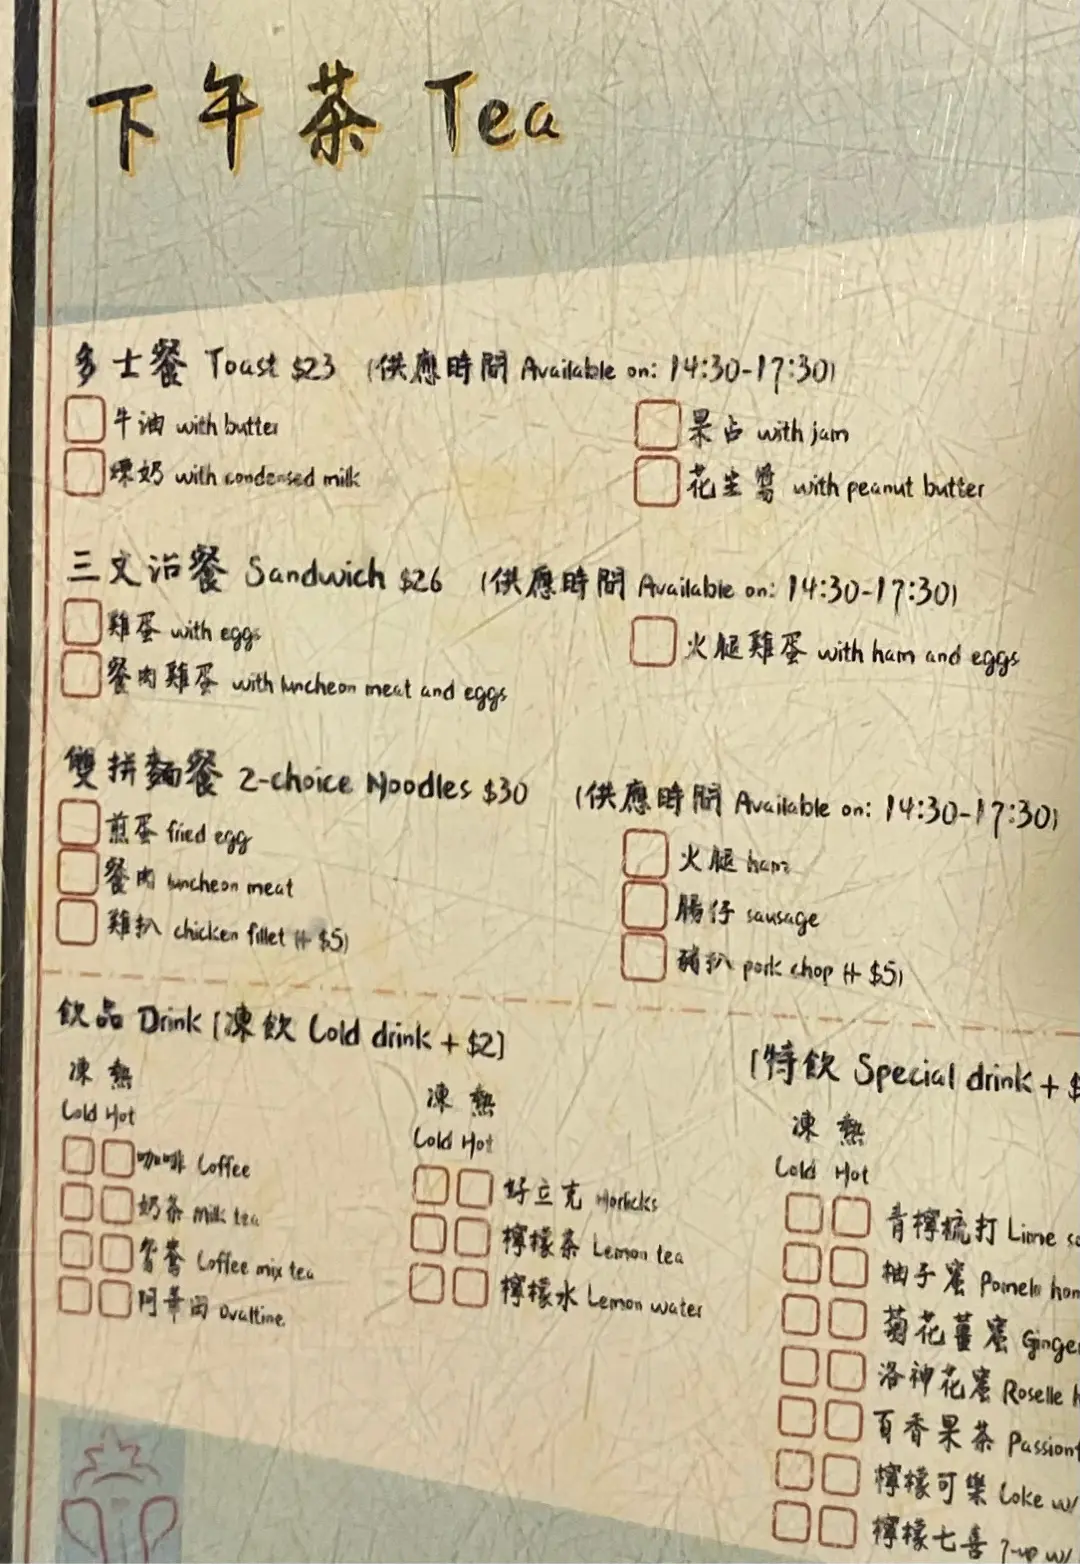 下午茶 Tea
多士餐 Toast $23 (供應時間 Available on: 14:30-17:30)
牛油 with butter
果占 with jam
煉奶 with condensed milk
花生醬 with peanut butter
三文治餐 Sandwich $26 (供應時間 Available on: 14:30-17:30)
雞蛋 with eggs
火腿雞蛋 with ham and eggs
餐肉雞蛋 with luncheon meat and eggs
雙拼麵餐 2-choice Noodles $30 (供應時間 Available on: 14:30-17:30)
煎蛋 fried egg
火腿 ham
餐肉 luncheon meat
腸仔 sausage
雞扒 chicken fillet (+ $5)
豬扒 pork chop (+ $5)
飲品 Drink [凍飲 Cold drink + $2]
凍 熱
Cold Hot
咖啡 Coffee
奶茶 Milk tea
鴛鴦 Coffee mix tea
阿華田 Ovaltine
凍 熱
Cold Hot
好立克 Horlicks
檸檬茶 Lemon tea
檸檬水 Lemon water
[特飲 Special drink + $
凍 熱
Cold Hot
青檸梳打 Lime
柚子蜜 Pomelo
菊花薑蜜 Ginger
洛神花蜜 Roselle
百香果茶 Passion
檸檬可樂 Coke w/
檸檬七喜 7-up w/